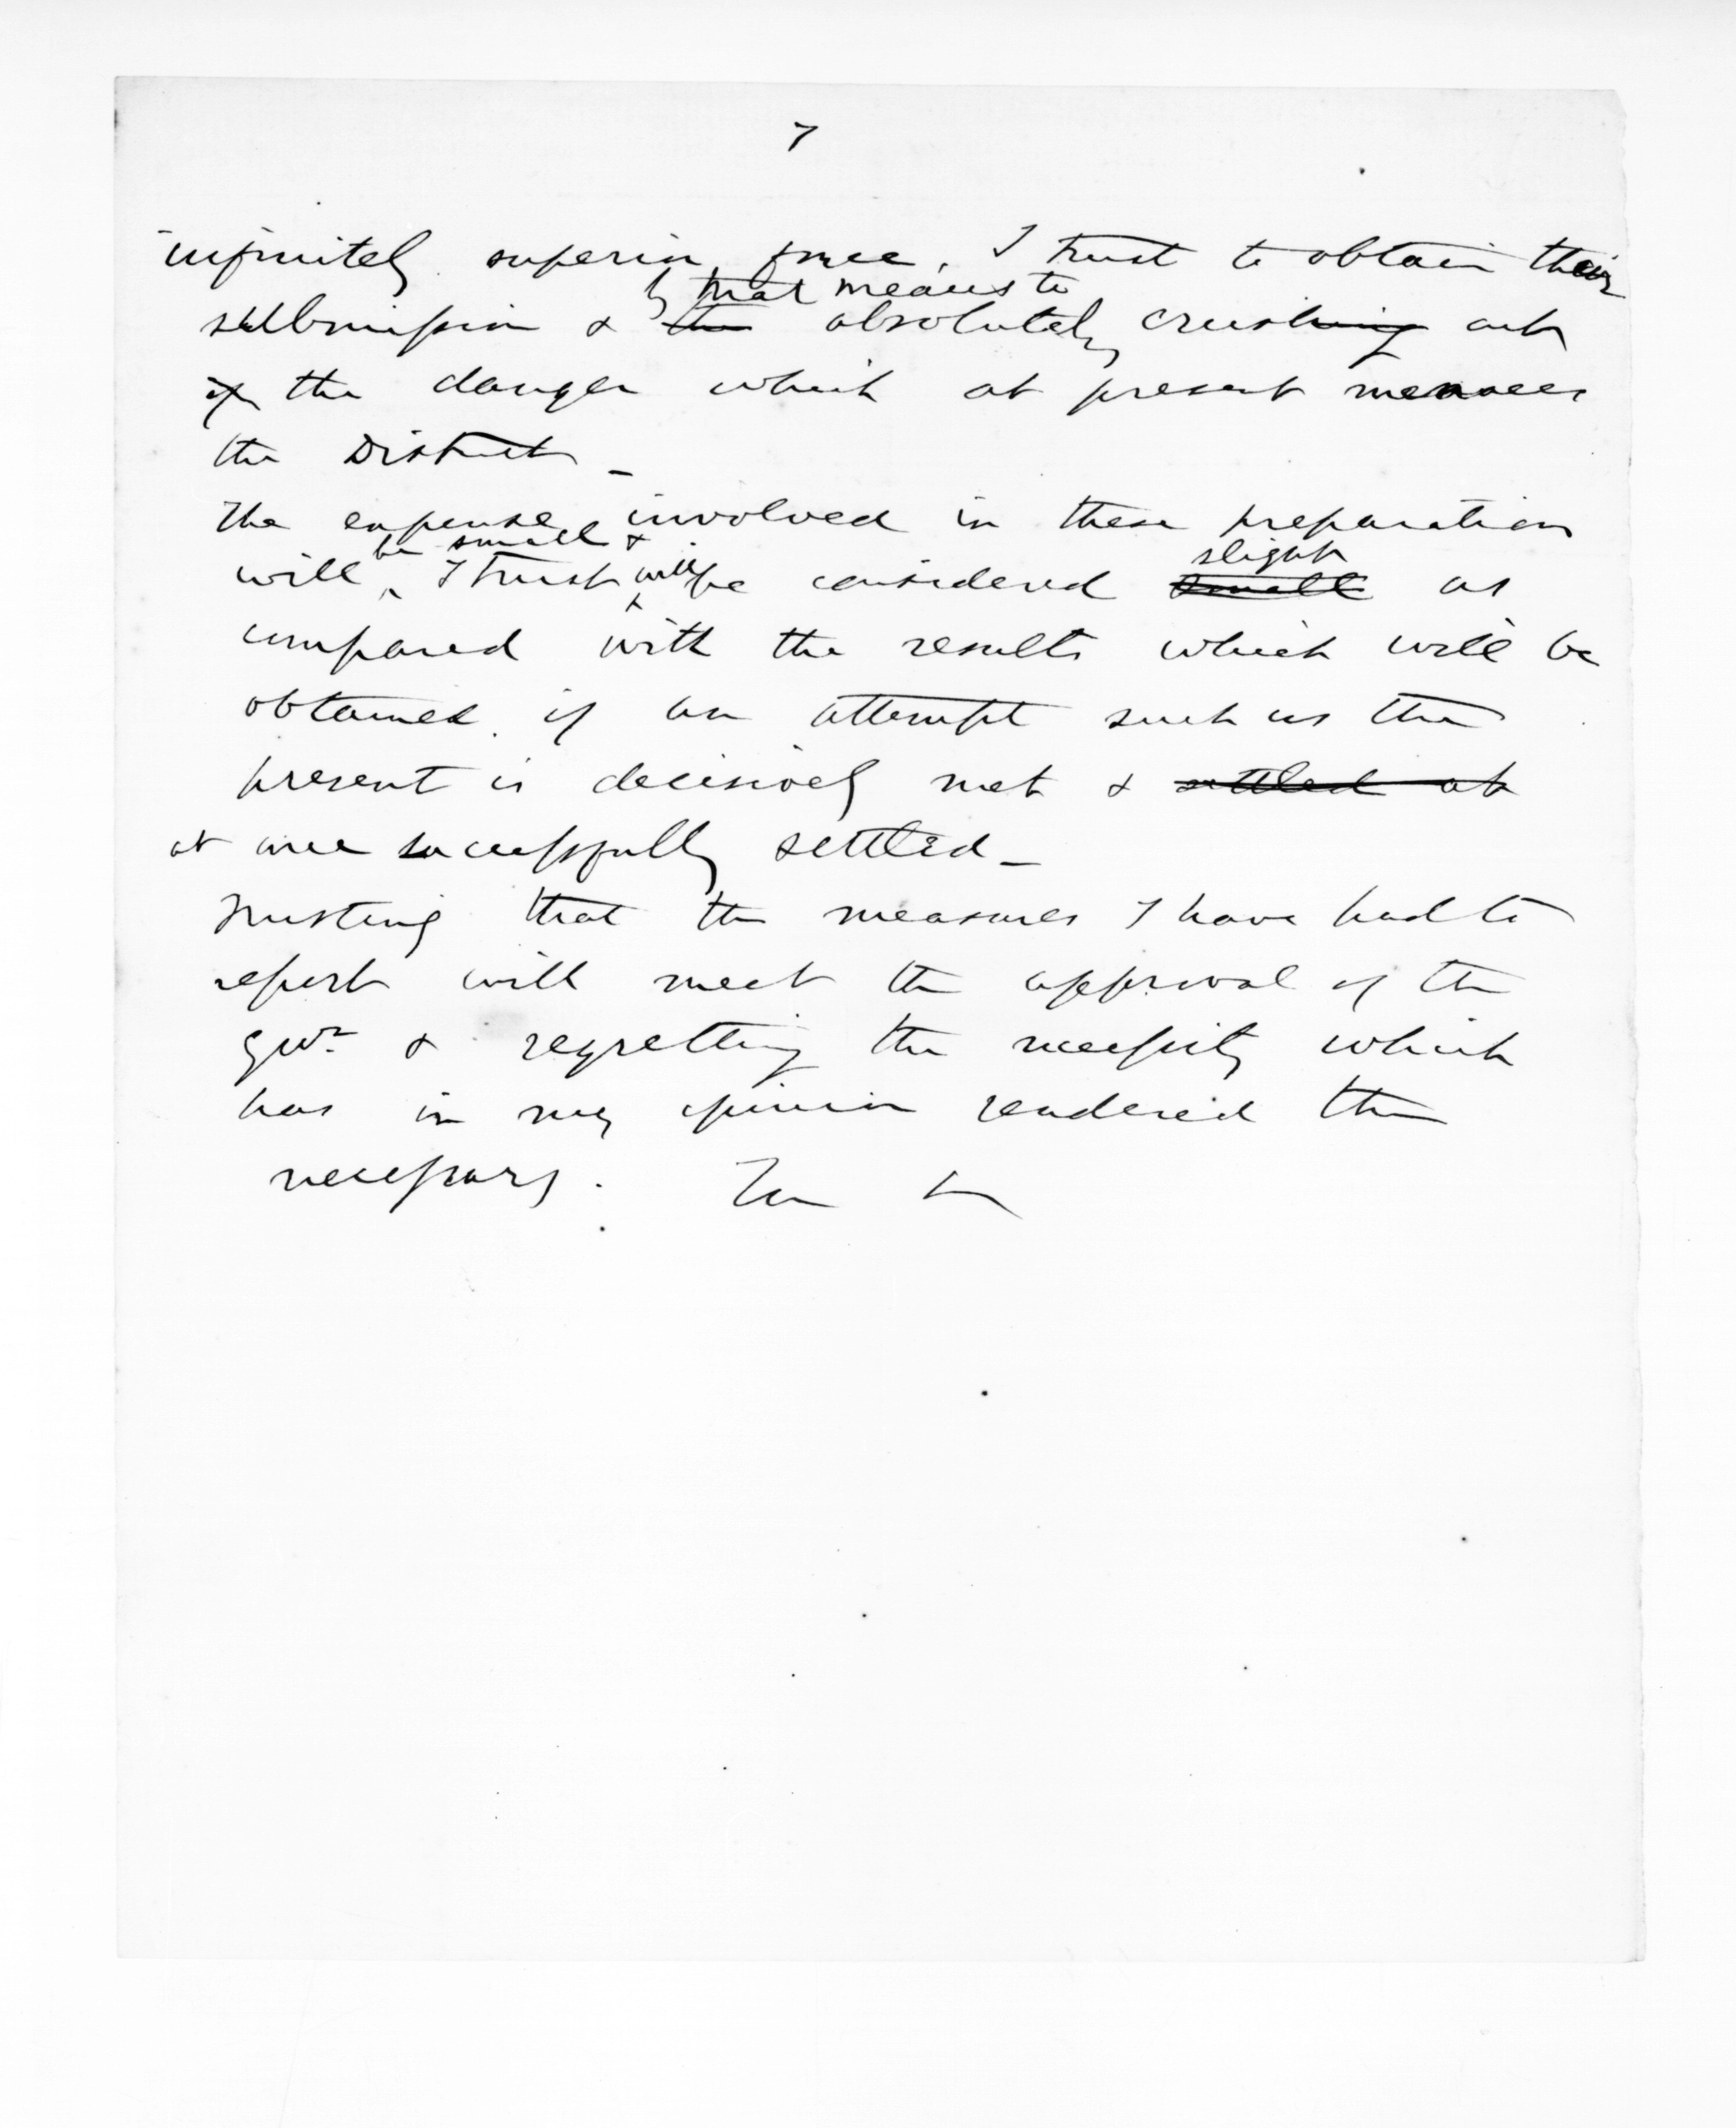 7
infinitely superior force, I trust to obtain their
by that means to
submission & the absolutely crushing out
of the danger which at present menaces
the District _
The expense involved in these preparations
be small & slight
will, I trust will be considered small as
compared with the results which will be
obtained if an attempt such as the
present is decisively met & settled at
at once successfully settled _
Trusting that the measures I have had to
report will meet the approval of the
Govr & regretting the necessity which
has in my opinion rendered them
necessary.